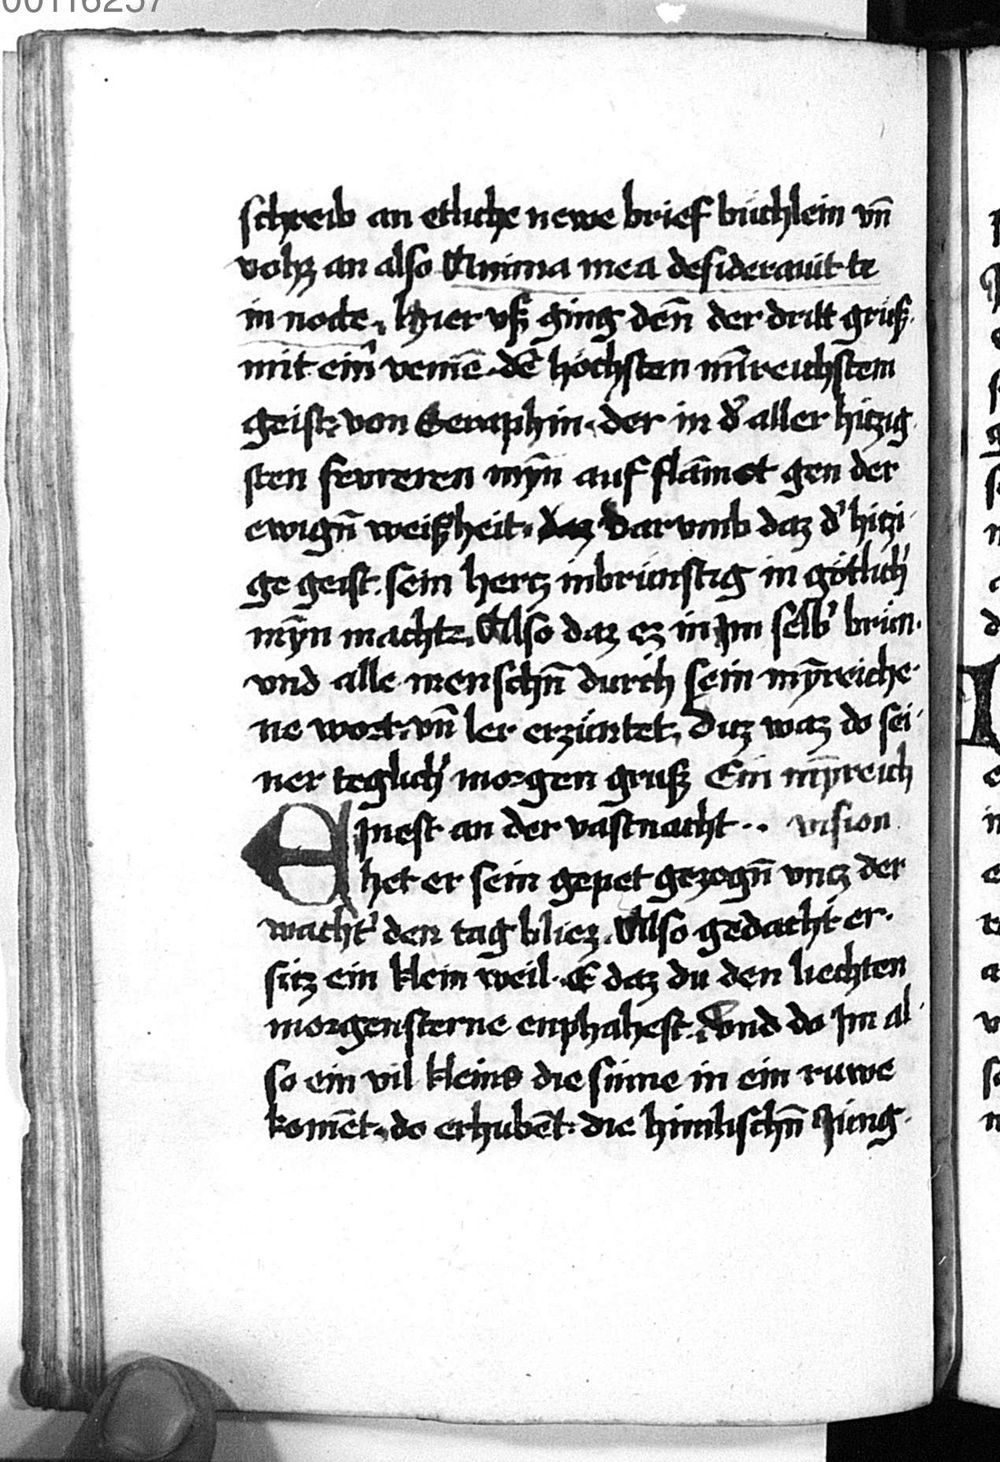 00116237
schreib an etliche newe brief büchlein vn̄
vohz an also Anima mea desiderauit te
in nocte. Hier vß ging den̄ der dritt grüß.
mit ein̉ venie. dē höchsten mīreichstem
geist. von Seraphin. der in d̉ aller hitzig
sten fevreren myn̄ auf flāmet gen der
ewign̄ weißheit. Darvmb daz d̉ hitzi
ge geist. sein hertz inbrünstig in götlich̉
mȳn macht. Also daz ez in Im selb̉ brün.
vnd alle menschn̄ durch sein mȳreiche.
ne wort. vn̄ ler erzüntet. Diz waz do sei
ner teglich̉ morgen gruß Ein mȳreich
EInest an der vastnacht.. vision
het er sein gepet gezogn̄ vntz der
wacht̉ den tag bliez. Also gedacht er.
sitz ein klein weil. E daz du den liechten
morgensterne enphahest. Vnd do Im al
so ein vil kleins die sinne in ein ruwe
komēt. do erhubēt. die himlischn̄ Jüng